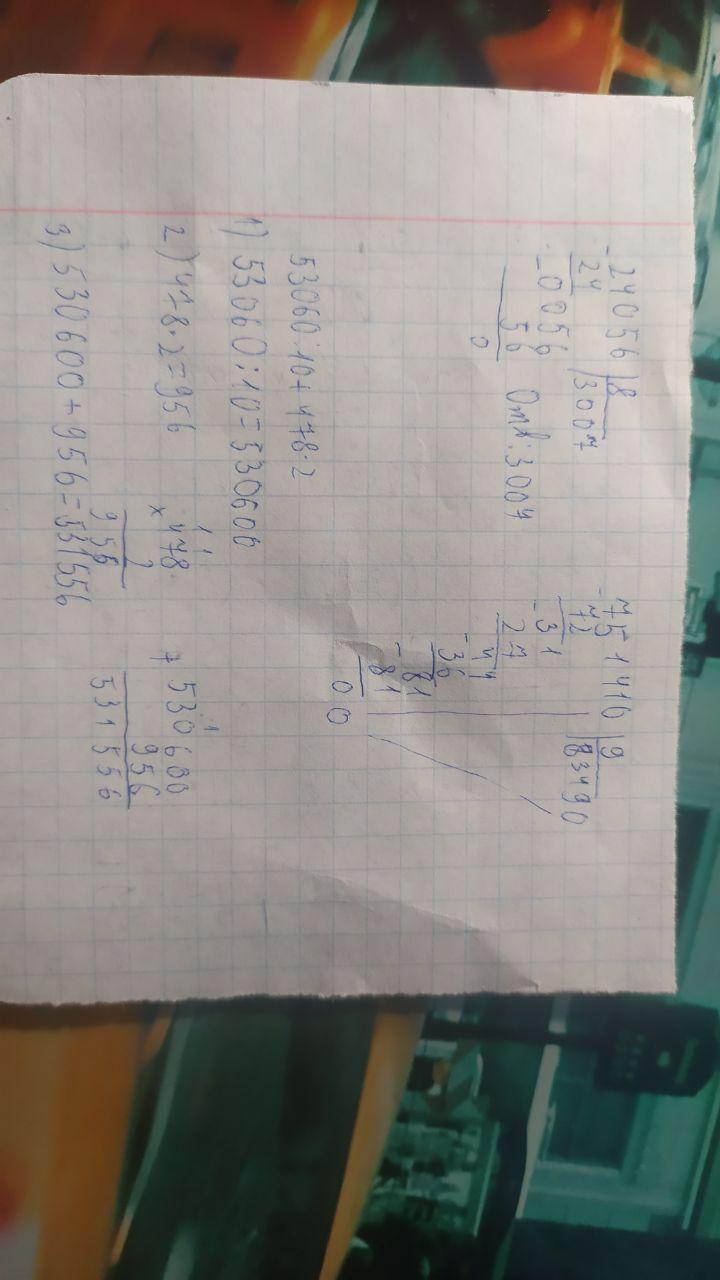 -24056 |8
24 3007
-0056
56
0
Отв: 3007
-751410 |9
72 83490
-31
27
-44
36
-81
-81
00
53060·10+478·2
1) 53060·10=530600
2) 478·2=956
11
×478
2
956
1
+530600
956
531556
3) 530600+956=531556